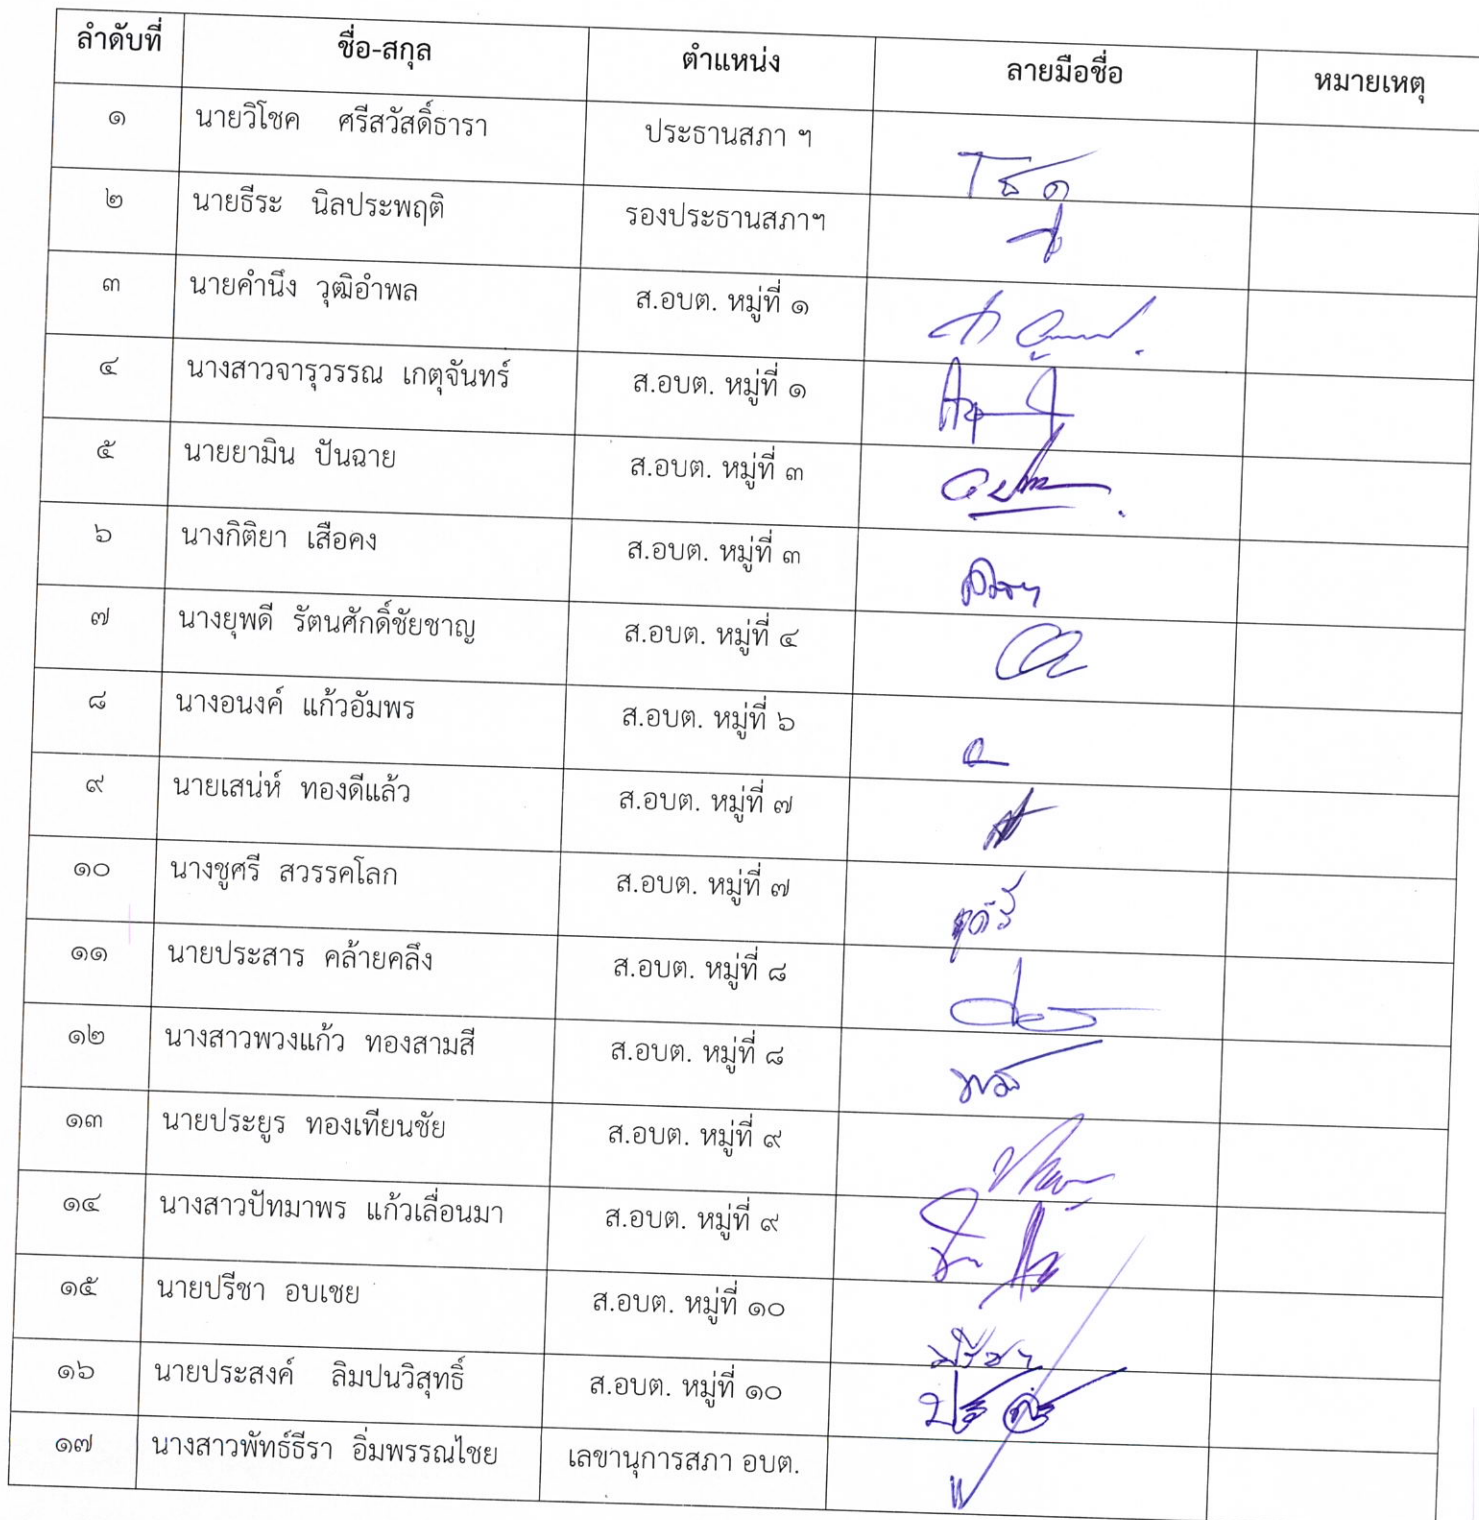 ลำดับที่ ชื่อ-สกุล ตำแหน่ง ลายมือชื่อ หมายเหตุ
๑ นายวิโชค ศรีสวัสดิ์ธารา ประธานสภา ฯ
๒ นายธีระ นิลประพฤติ รองประธานสภาฯ
๓ นายคำนึง วุฒิอำพล ส.อบต. หมู่ที่ ๑
๔ นางสาวจารุวรรณ เกตุจันทร์ ส.อบต. หมู่ที่ ๑
๕ นายยามิน ปันฉาย ส.อบต. หมู่ที่ ๓
๖ นางกิติยา เสือคง ส.อบต. หมู่ที่ ๓
๗ นางยุพดี รัตนศักดิ์ชัยชาญ ส.อบต. หมู่ที่ ๔
๘ นางอนงค์ แก้วอัมพร ส.อบต. หมู่ที่ ๖
๙ นายเสน่ห์ ทองดีแล้ว ส.อบต. หมู่ที่ ๗
๑๐ นางชูศรี สวรรคโลก ส.อบต. หมู่ที่ ๗
๑๑ นายประสาร คล้ายคลึง ส.อบต. หมู่ที่ ๘
๑๒ นางสาวพวงแก้ว ทองสามสี ส.อบต. หมู่ที่ ๘
๑๓ นายประยูร ทองเทียนชัย ส.อบต. หมู่ที่ ๙
๑๔ นางสาวปัทมาพร แก้วเลื่อนมา ส.อบต. หมู่ที่ ๙
๑๕ นายปรีชา อบเชย ส.อบต. หมู่ที่ ๑๐ ปรีชา
๑๖ นายประสงค์ ลิมปนวิสุทธิ์ ส.อบต. หมู่ที่ ๑๐
๑๗ นางสาวพัทธ์ธีรา อิ่มพรรณไชย เลขานุการสภา อบต.